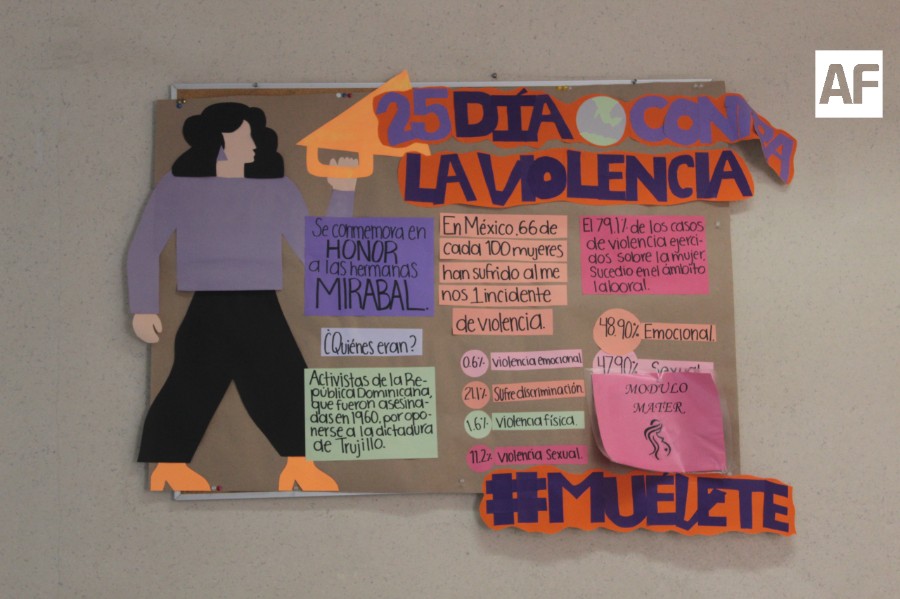 AF
25 DÍA CONTRA
LA VIOLENCIA
Se conmemora en
HONOR
a las hermanas
MIRABAL.
¿Quiénes eran?
Activistas de la Re-
pública Dominicana,
que fueron asesina-
das en 1960, por opo-
nerse a la dictadura
de Trujillo.
En México, 66 de
cada 100 mujeres
han sufrido al me
nos 1 incidente
de violencia.
0.6% Violencia emocional
21.1% Sufre discriminación.
1.6% Violencia física.
11.2% Violencia Sexual.
El 79.1% de los casos
de violencia ejerci-
dos sobre la mujer,
Sucedio en el ámbito
laboral.
48.90% Emocional.
47.90% Sexual
MODULO
MATER.
#MUELETE